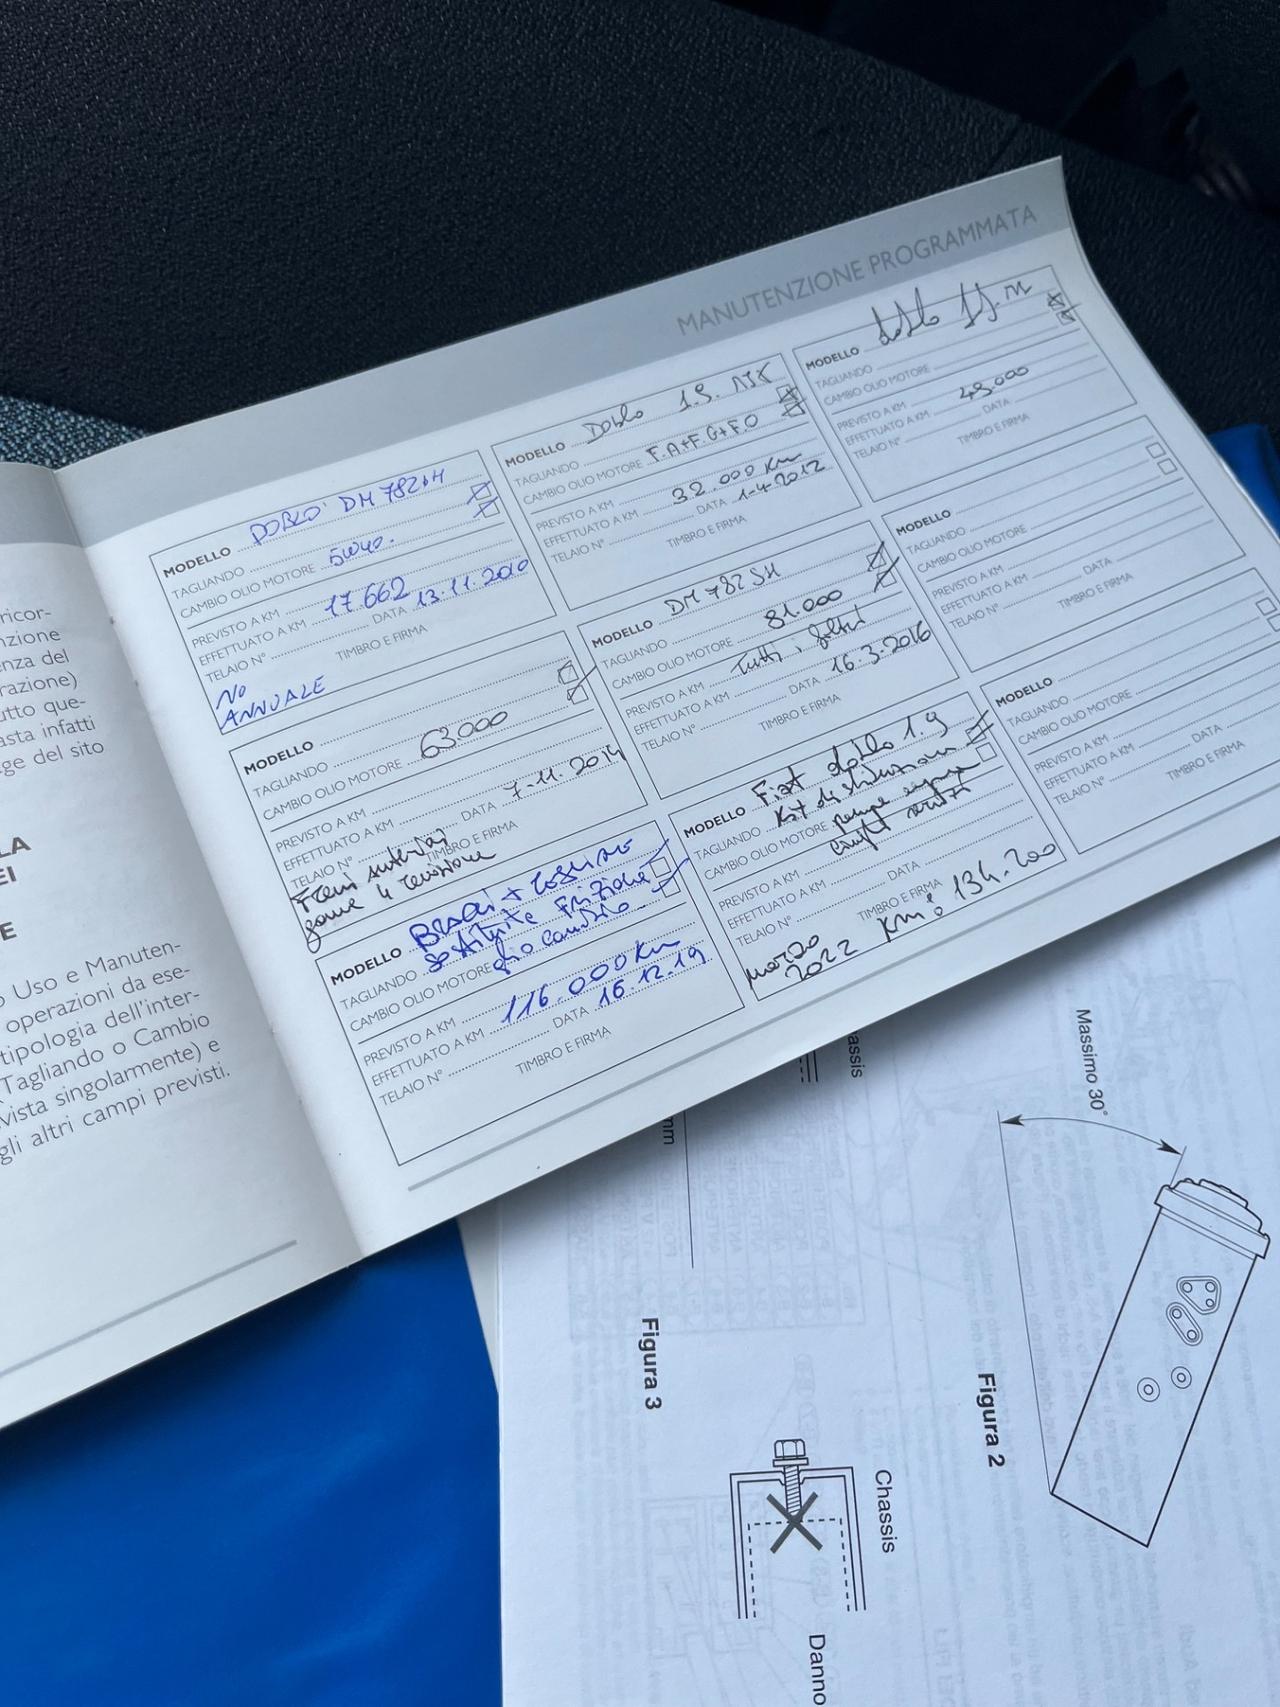 MANUTENZIONE PROGRAMMATA
MODELLO DOBLO' DM 782
TAGLIANDO
CAMBIO OLIO MOTORE 5W40.
PREVISTO A KM
EFFETTUATO A KM 17.662
TELAIO N° DATA 13.11.2010
TIMBRO E FIRMA
NO
ANNUALE
MODELLO
TAGLIANDO
CAMBIO OLIO MOTORE 63000
PREVISTO A KM
EFFETTUATO A KM
TELAIO N° DATA 7.11.2014
TIMBRO E FIRMA
Freni anteriori
gomme 4 revisione
MODELLO
TAGLIANDO sostituite Frizione
CAMBIO OLIO MOTORE olio cambio
PREVISTO A KM
EFFETTUATO A KM 116.000 Km
TELAIO N° DATA 16.12.19
TIMBRO E FIRMA
MODELLO Doblo 1.9. MJT
TAGLIANDO
CAMBIO OLIO MOTORE F.A+F.G+F.O
PREVISTO A KM
EFFETTUATO A KM 32.000 Km
TELAIO N° DATA 1-4-2012
TIMBRO E FIRMA
MODELLO DM 782 SH
TAGLIANDO
CAMBIO OLIO MOTORE 81.000
PREVISTO A KM
EFFETTUATO A KM Tutti i filtri
TELAIO N° DATA 16.3.2016
TIMBRO E FIRMA
MODELLO Fiat doblo 1.9
TAGLIANDO Kit distribuzione
CAMBIO OLIO MOTORE pompa acqua
cinghia servizi
PREVISTO A KM
EFFETTUATO A KM
TELAIO N° DATA
TIMBRO E FIRMA
marzo
2022 Km: 134.200
MODELLO doblo
TAGLIANDO
CAMBIO OLIO MOTORE
PREVISTO A KM
EFFETTUATO A KM 49.000
TELAIO N° DATA
TIMBRO E FIRMA
MODELLO
TAGLIANDO
CAMBIO OLIO MOTORE
PREVISTO A KM
EFFETTUATO A KM
TELAIO N° DATA
TIMBRO E FIRMA
MODELLO
TAGLIANDO
CAMBIO OLIO MOTORE
PREVISTO A KM
EFFETTUATO A KM
TELAIO N° DATA
TIMBRO E FIRMA
ricor-
nzione
enza del
razione)
utto que-
asta infatti
ge del sito
LA
EI
E
o Uso e Manuten-
operazioni da ese-
tipologia dell'inter-
Tagliando o Cambio
vista singolarmente) e
gli altri campi previsti.
assis
mm
Massimo 30°
Figura 3
Figura 2
Chassis
Danno